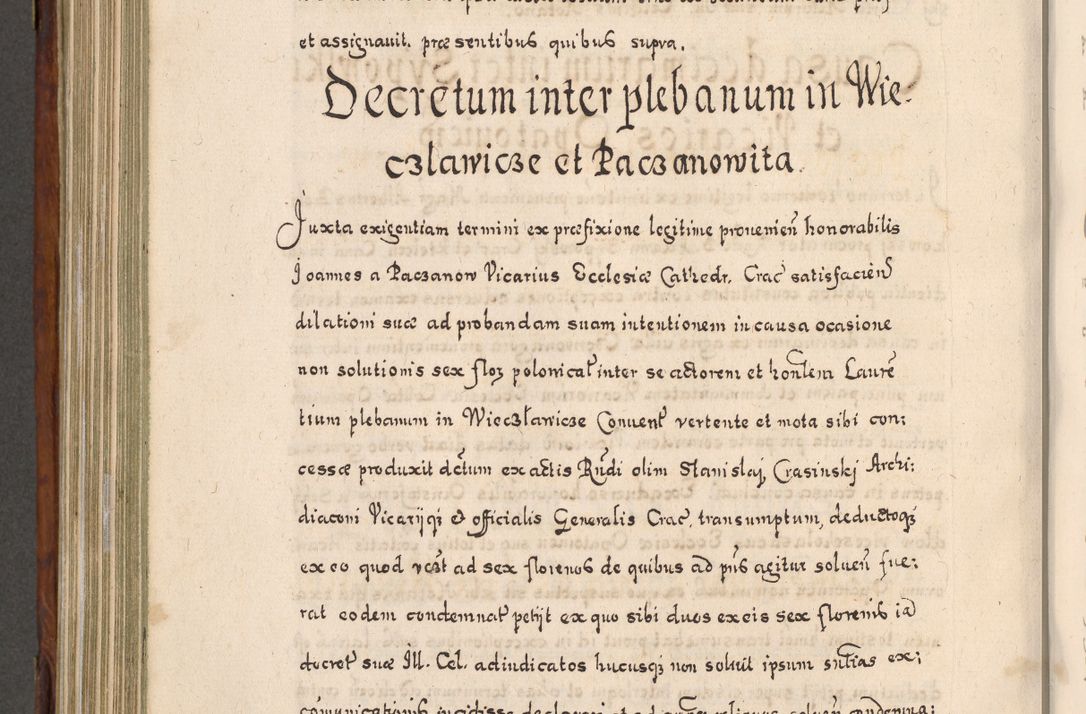 et assignavit. præsentibus quibus supra.
Decretum inter plebanum in Wie-
czlawicze et Paczanowita.
Juxta exigentiam termini ex præfixione legitime provenien̄ honorabilis
Joannes a Paczanow Vicarius Ecclesiæ Cathedr. Crac̄ satisfacien̄
dilationi suæ ad probandam suam intentionem in causa ocasione
non solutionis sex floꝫ polonical̄ inter se actorem et hon̄lem Laure͂
tium plebanum in Wieczławicze Convent̄ vertente et mota sibi con:
cessæ produxit dc̄tum ex actis Rn̄di olim Stanislaj, Crasinskj Archi:
diaconi Vicarijqꝫ & officialis Generalis Crac̄, transumptum, deductoqꝫ
ex eo quod rc̄st ad sex florenos de quibus ad pn̄s agitur solven̄ fue:
rat eodem condemnat̄ petijt ex quo sibi duos ex eis sex florenis ia͂
decret̄ suæ Ill. Cel. adiudicatos hucusqꝫ non solvit ipsum sn̄tias ex: